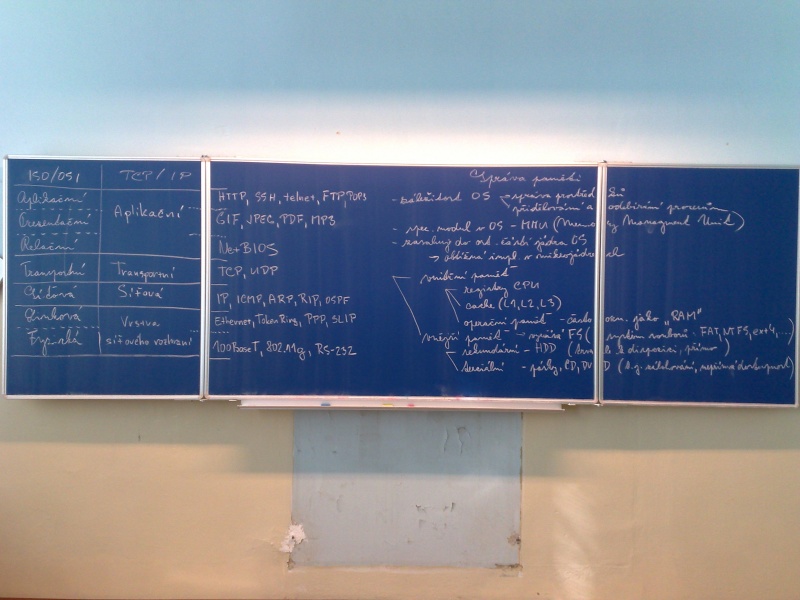 ISO/OSI TCP/IP
Aplikační
Aplikační
HTTP, SSH, telnet, FTP, POP3
Prezentační
GIF, JPEG, PDF, MP3
Relační
NetBIOS
Transportní Transportní TCP, UDP
Síťová Síťová IP, ICMP, ARP, RIP, OSPF
Linková
Vrstva
Ethernet, Token Ring, PPP, SLIP
Fyzická síťového rozhraní 100BaseT, 802.11g, RS-232
Správa paměti
- záležitost OS správa prostředků
přidělování a odebírání procesům
- spec. modul v OS - MMU (Memory Managment Unit)
- do jádra OS
→ obtížná impl. v mikrojádře
vnitřní paměť
registry CPU
cache (L1, L2, L3)
operační paměť - často ozn. jako "RAM"
vnější paměť - správa FS (systém souborů - FAT, NTFS, ext4, ...)
sekundární - HDD (k dispozici, přímo)
terciální - pásky, CD, DVD